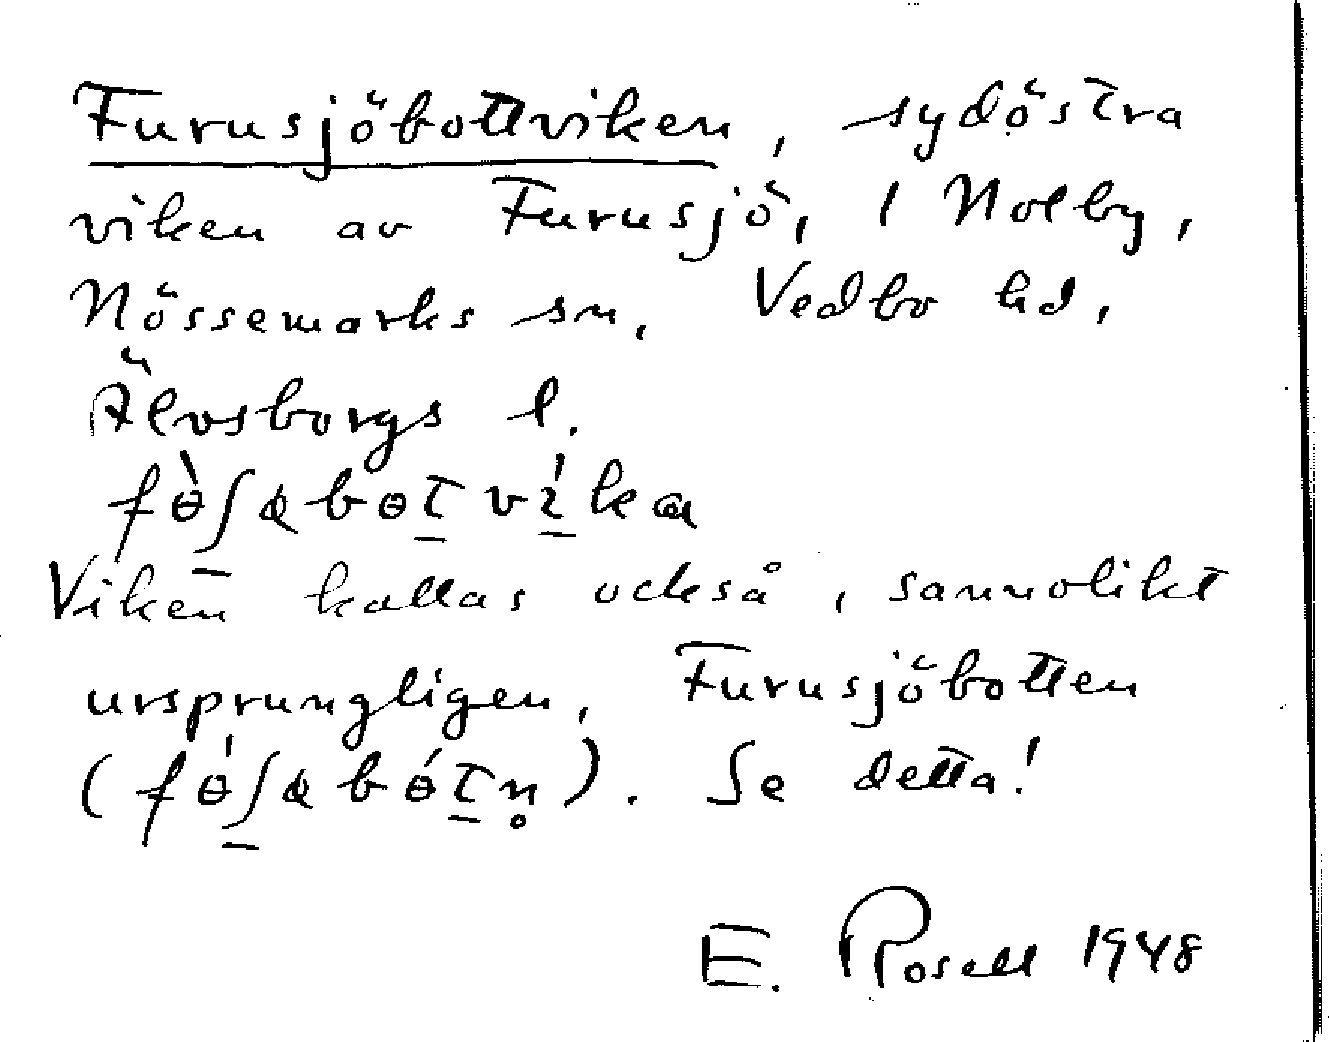 Furusjöbottviken, sydöstra
viken av Furusjö, i Nolby,
Nössemarks sn, Vedbo hd,
Älvsborgs l.
fɵ̀ʃabɵt víka
Viken kallas också, sannolikt
ursprungligen, Furusjöbotten
(fɵ́ʃabɵ́tn̥). Se detta!
E. Rosell 1948